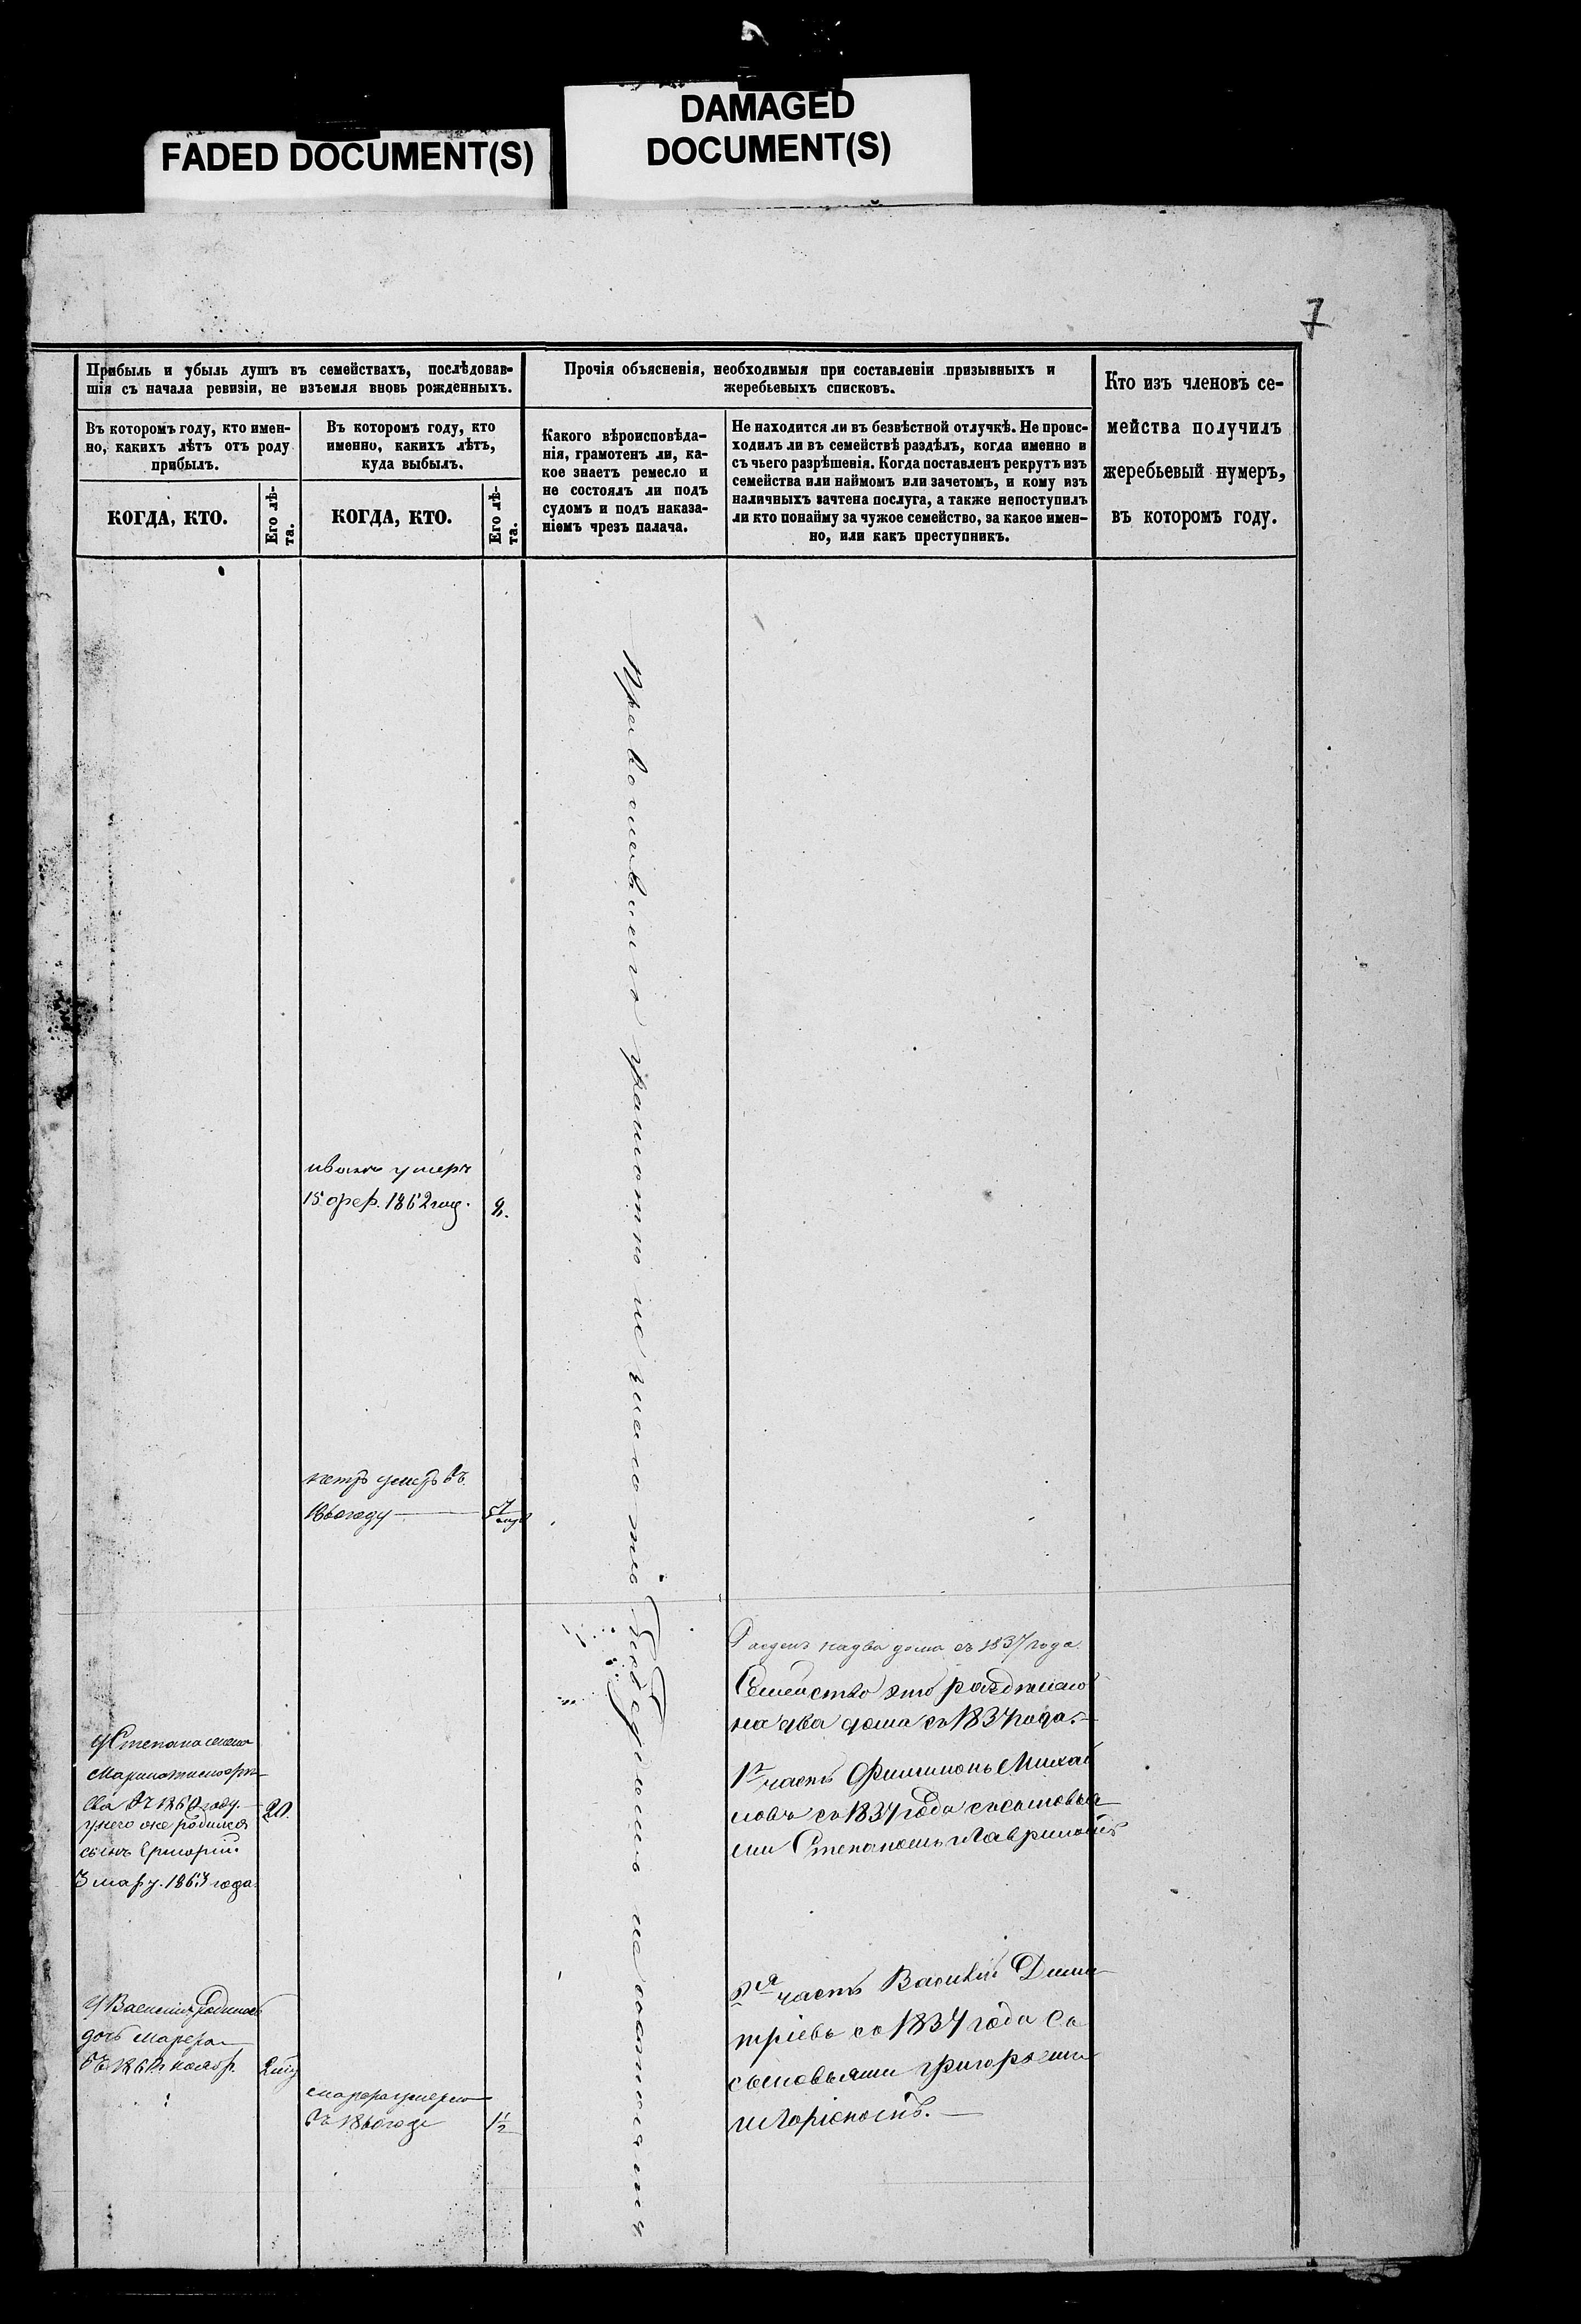 FADED DOCUMENT(S)
DAMAGED
DOCUMENT(S)
7
Прибыль и убыль душъ въ семействахъ, послѣдовав-
шія съ начала ревизіи, не изъемля вновь рожденныхъ.
Въ которомъ году, кто имен-
но, какихъ лѣтъ отъ роду
прибылъ.
КОГДА, КТО.
Его лѣ-
та.
Въ которомъ году, кто
именно, какихъ лѣтъ,
куда выбылъ.
КОГДА, КТО.
Его лѣ-
та.
Прочія объясненія, необходимыя при составленіи призывныхъ и
жеребьевыхъ списковъ.
Какого вѣроисповѣда-
нія, грамотенъ ли, ка-
кое знаетъ ремесло и
не состоялъ ли подъ
судомъ и подъ наказа-
ніемъ чрезъ палача.
Не находится ли въ безвѣстной отлучкѣ. Не проис-
ходилъ ли въ семействѣ раздѣлъ, когда именно и
съ чьего разрѣшенія. Когда поставленъ рекрутъ изъ
семейства или наймомъ или зачетомъ, и кому изъ
наличныхъ зачтена послуга, а также непоступилъ
ли кто понайму за чужое семейство, за какое имен-
но, или какъ преступникъ.
Кто изъ членовъ се-
мейства получилъ
жеребьевый нумеръ,
въ которомъ году.
иванъ умеръ
15 фев. 1862 год. 2.
петръ умеръ въ
1860 году
Православнаго грамотно не не состоятъ
на два дома съ 1837 года
Семейство это
на два дома съ 1837 года.
1я часть Филимонъ Михай
ловъ съ 1837 года съ сыновья
ми Степаномъ и Гавриломъ
У Степана
въ 1860 году. 20.
у него же родился
сынъ Григорій.
3 1863 года.
2я часть Василій Дими
тріевъ съ 1837 года съ
сыновьями Григорьемъ
У Василія родилась
дочь марфа
въ ноябр.
марфа умерла
въ 1860 годе 1 1/2